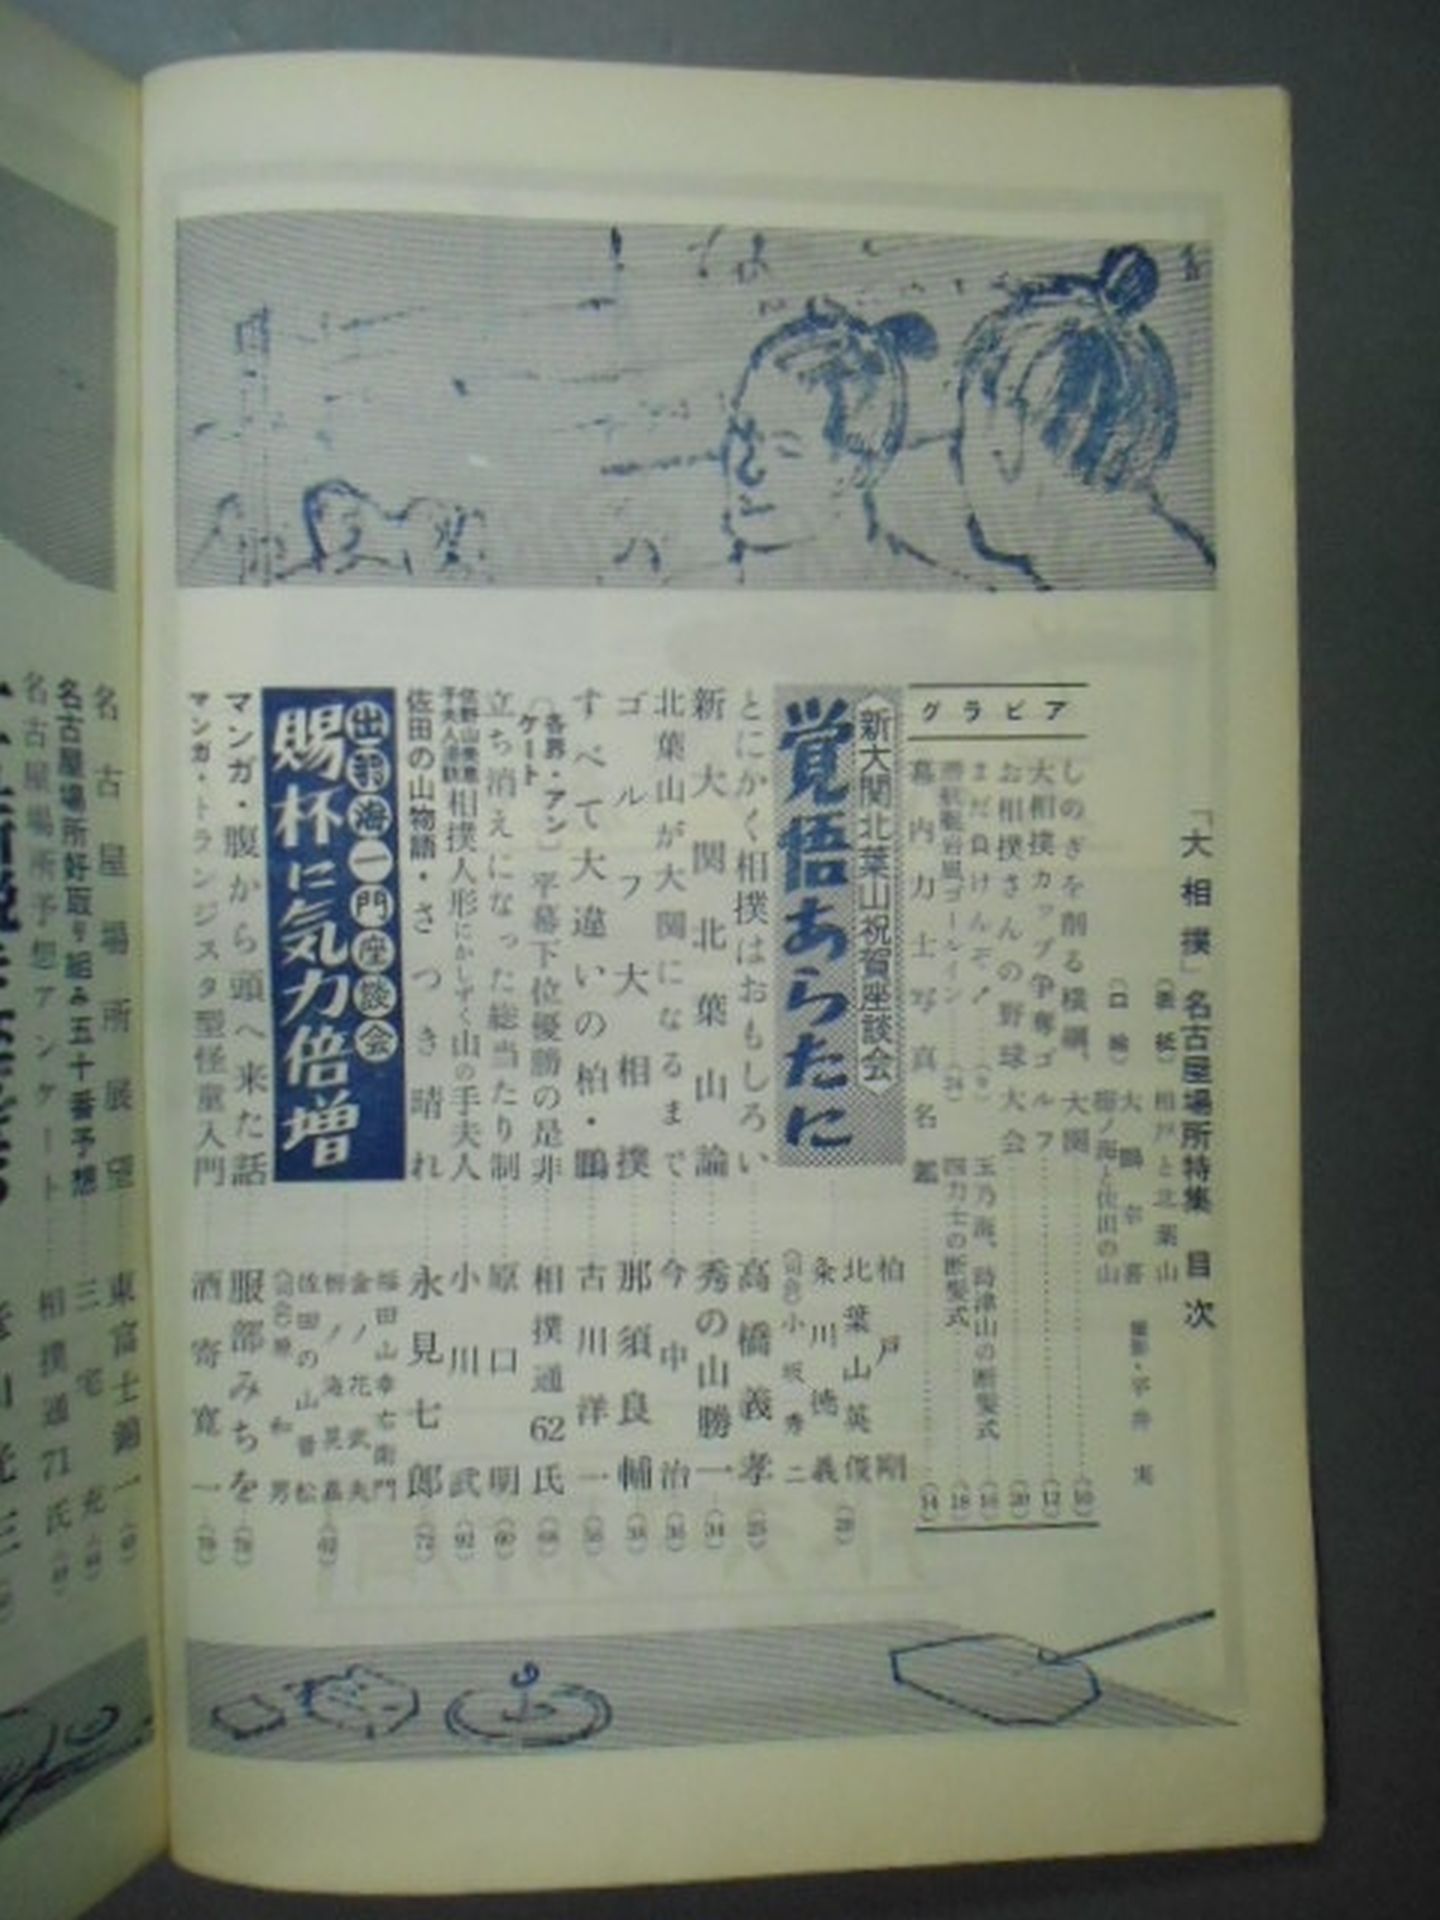 「大相撲」名古屋場所特集 目次
(表紙) 柏戸と北葉山
(口絵) 大鵬幸喜 撮影・平井 実
栃ノ海と佐田の山
グラビア
しのぎを削る横綱、大関……(10)
大相撲カップ争奪ゴルフ……(12)
お相撲さんの野球大会……(20)
まだ負けんぞ!……(9) 玉乃海、時津山の断髪式……(16)
ゴールイン……(24) 四力士の断髪式……(18)
幕内力士写真名鑑……(14)
〈新大関北葉山祝賀座談会〉
覚悟あらたに……(28)
柏戸 剛
北葉山英俊
粂川徳義
(司会)小坂秀二
とにかく相撲はおもしろい……高橋義孝(25)
新大関北葉山論……秀の山勝一(34)
北葉山が大関になるまで……今中 治(36)
ゴルフ大相撲……那須良輔(38)
すべて大違いの柏・鵬……古川洋一(56)
〔各界・アンケート〕平幕下位優勝の是非……相撲通62氏(68)
立ち消えになった総当たり制……原口 明(60)
相撲人形にかしずく山の手夫人……小川 武(92)
佐田の山物語・さつき晴れ……永見七郎(72)
出羽海一門座談会
賜杯に気力倍増(62)
福田山幸右衛門
金ノ花武夫
栃ノ海晃嘉
佐田の山晋松
(司会)原 和男
マンガ・腹から頭へ来た話……服部みちを(78)
マンガ・トランジスタ型怪童入門……酒寄寛一(79)
名古屋場所展望……東富士錦一
名古屋場所好取り組み五十番予想……三宅 充
名古屋場所予想アンケート……相撲通71氏